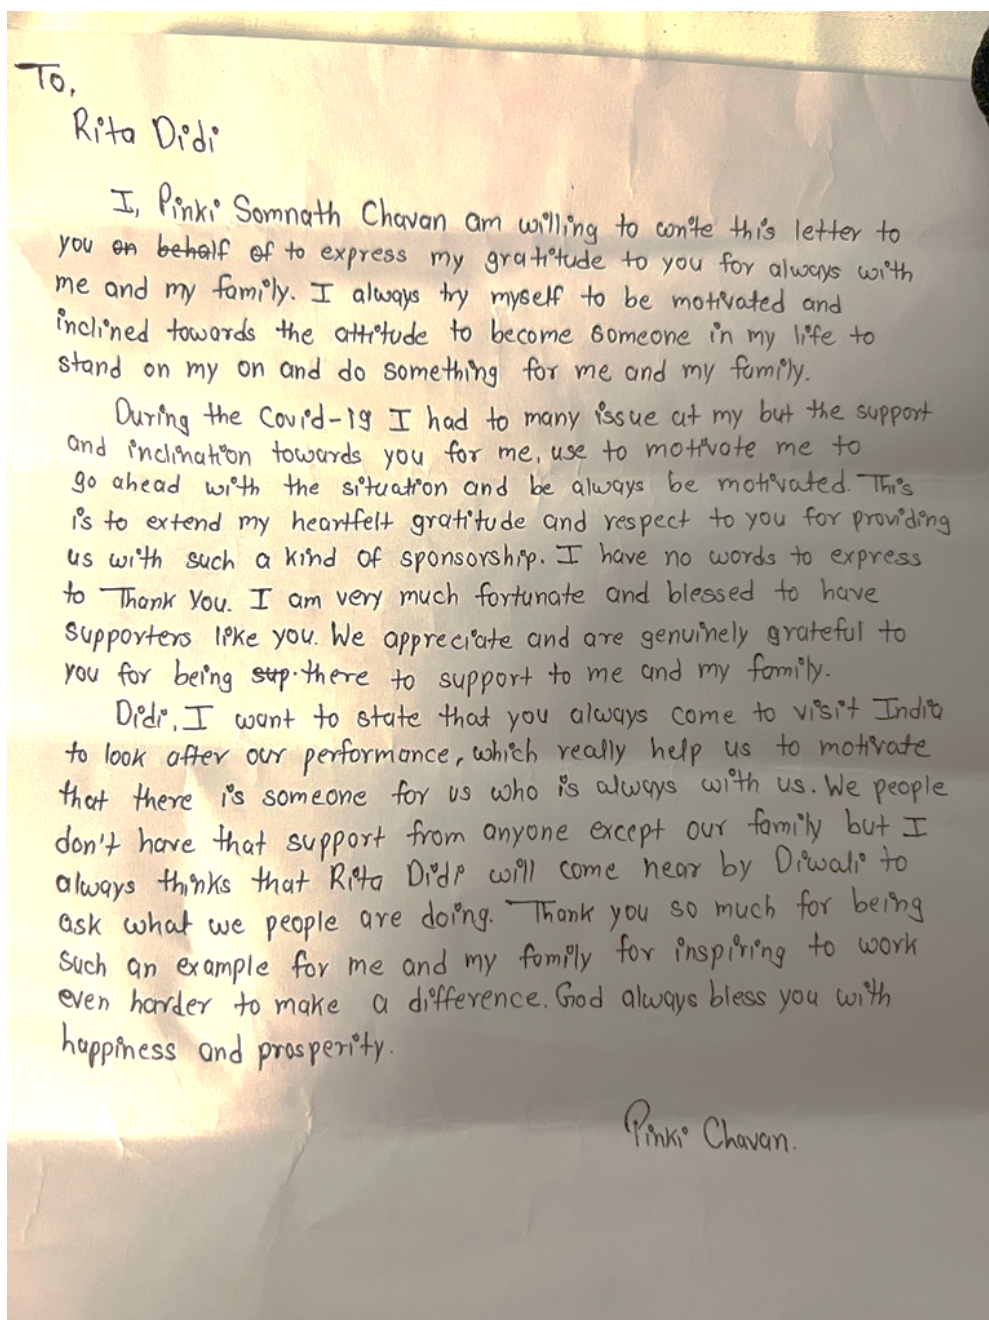 To,
Rita Didi
I, Pinki Somnath Chavan am willing to conte this letter to
you on behalf of to express my gratitude to you for always with
me and my family. I always try myself to be motivated and
inclined towards the attitude to become someone in my life to
stand on my on and do something for me and my family.
During the Covid-19 I had to many issue at my but the support
and inclination towards you for me, use to motivate me to
go ahead with the situation and be always be motivated. This
is to extend my heartfelt gratitude and respect to you for providing
us with such a kind of sponsorship. I have no words to express
to Thank You. I am very much fortunate and blessed to have
supporters like you. We appreciate and are genuinely grateful to
you for being sup. there to support to me and my family.
Didi, I want to state that you always come to visit India
to look after our performance, which really help us to motivate
that there is someone for us who is always with us. We people
don't have that support from anyone except our family but I
always thinks that Rita Didi will come near by Diwali to
ask what we people are doing. Thank you so much for being
such an example for me and my family for inspiring to work
even harder to make a difference. God always bless you with
happiness and prosperity.
Pinki Chavan.